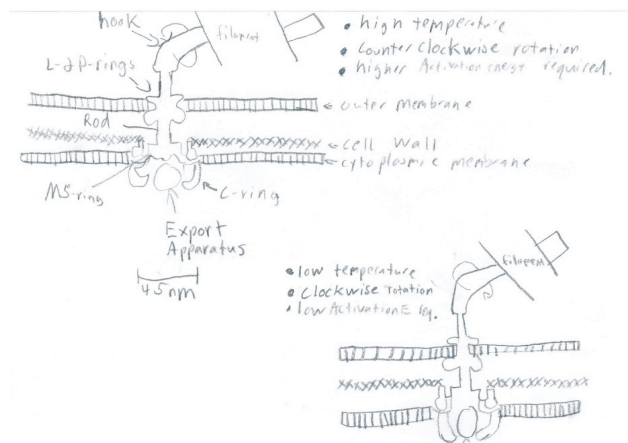 hook
filament
• high temperature
• Counter clockwise rotation
• higher Activation energy required.
L-&P-rings
outer membrane
Rod
cell Wall
cytoplasmic membrane
MS-ring
C-ring
Export
Apparatus
45nm
filament
• low temperature
• Clockwise rotation
• low Activation E req.